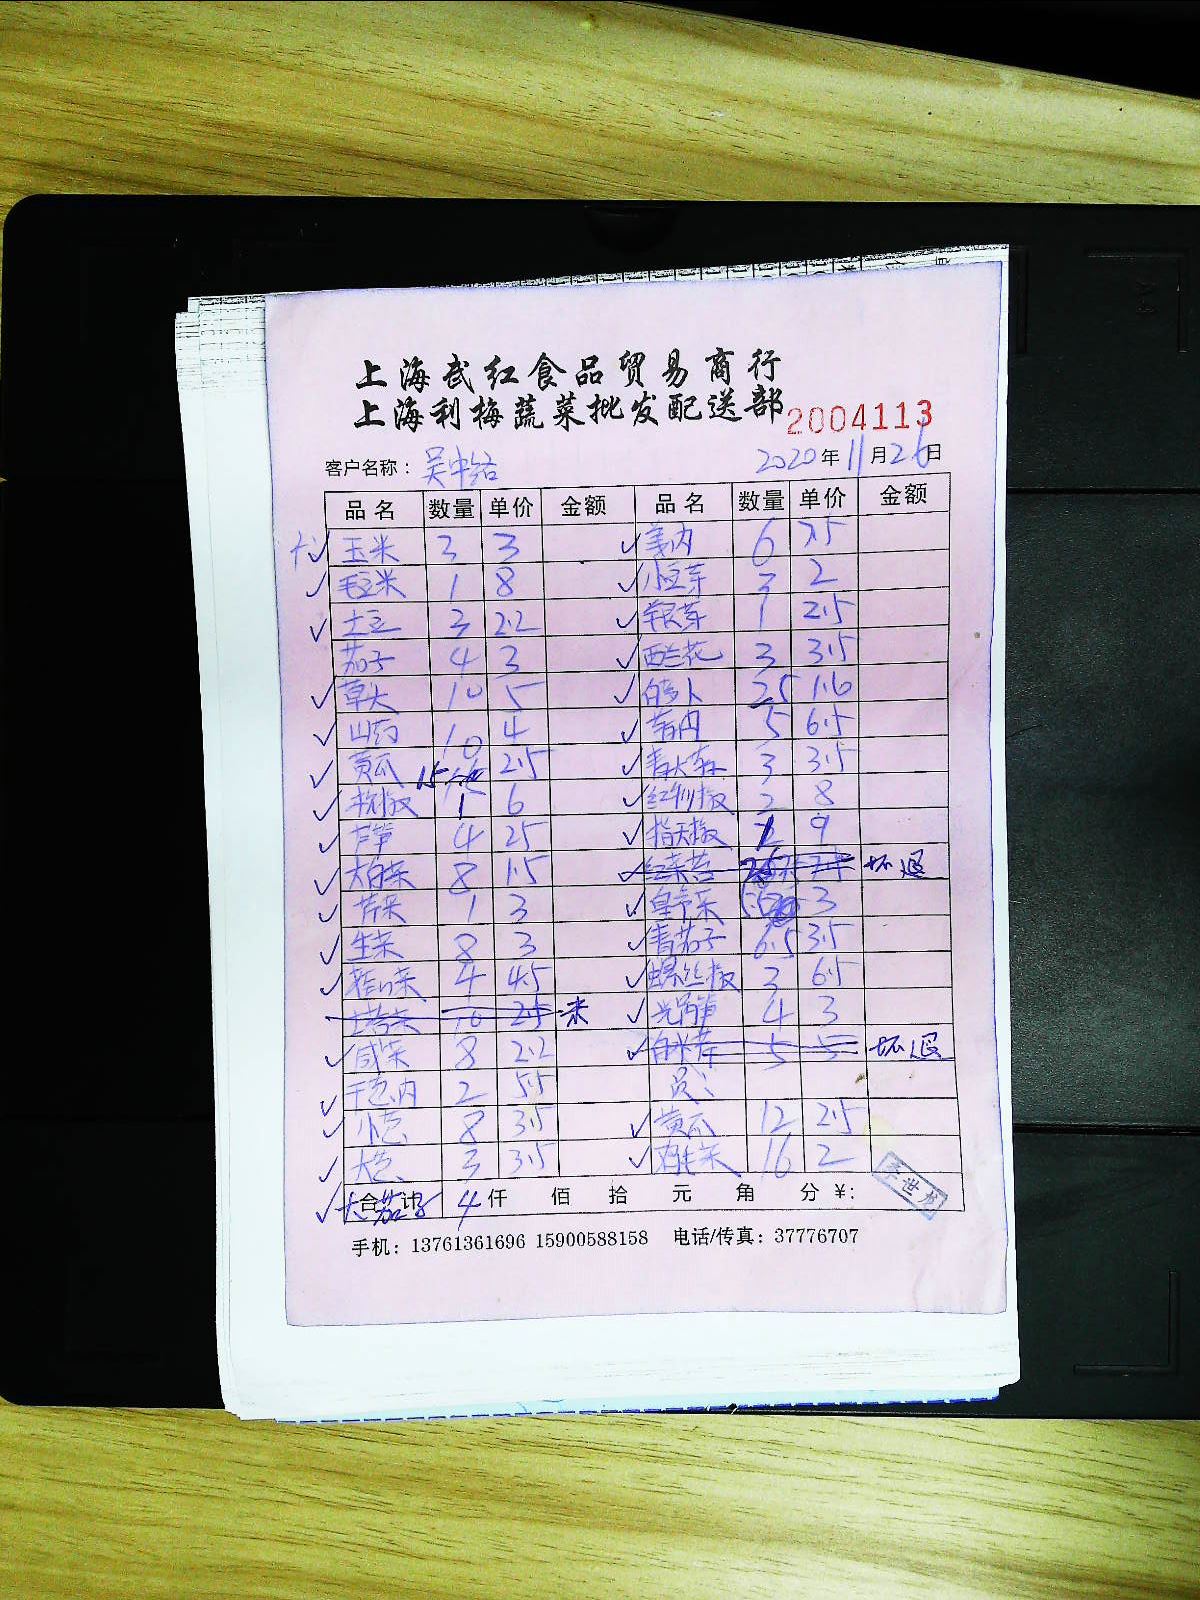 上海武红食品贸易商行
上海利梅蔬菜批发配送部 2004113
客户名称: 吴中路 2020年11月26日
品名 数量 单价 金额 品名 数量 单价 金额
玉米 3 3 姜肉 6 7.5
毛豆米 1 8 小豆芽 3 2
土豆 3 2.2 银芽 1 2.5
茄子 4 3 西兰花 3 3.5
草头 10 5 白萝卜 25 1.6
山药 10 4 莴肉 5 6.5
黄瓜 15 2.5 青大椒 3 3.5
杭椒 1 6 红刺椒 2 8
芦笋 4 25 指天椒 9
大白菜 8 1.5 红菜苔 坏退
芹菜 1 3 皇帝菜 3
生菜 8 3 青茄子 6.5 3.5
4 4.5 螺丝椒 3 6.5
塔菜 10 2.5 未 光莴笋 4 3
咸菜 8 2.2 白米芹 5 5 坏退
干葱肉 2 5.5 员:
小葱 8 3.5 黄瓜 12 2.5
大葱 3 3.5 鸡毛菜 16 2
合计 仟 佰 拾 元 角 分 ¥: 李世龙
大茄子 4
手机: 13761361696 15900588158 电话/传真: 37776707